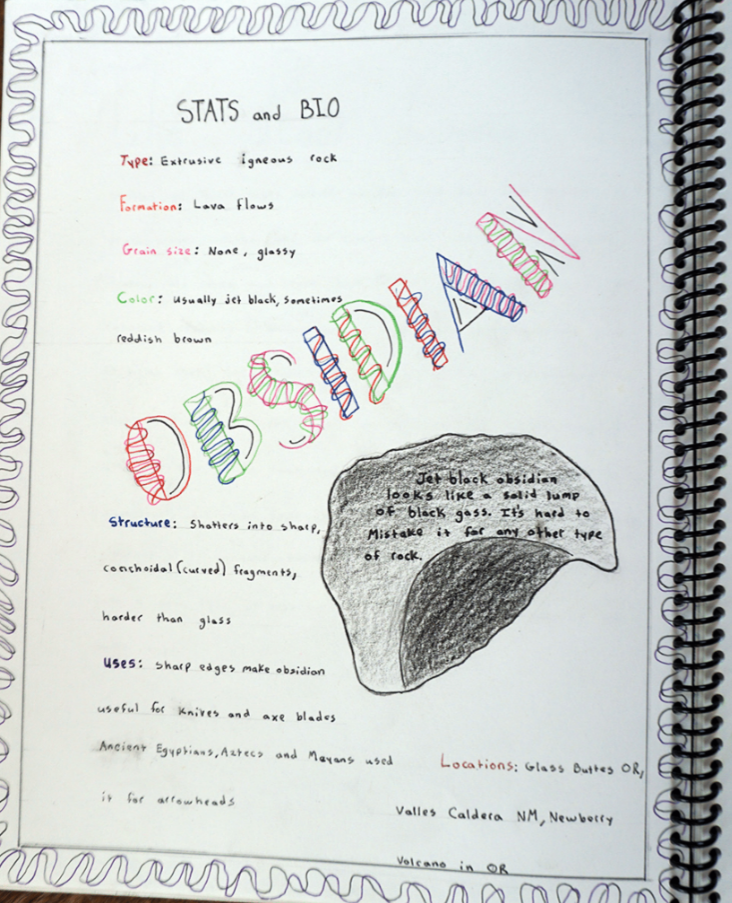 STATS and BIO
Type: Extrusive igneous rock
Formation: Lava Flows
Grain size: None, glassy
Color: usually jet black, sometimes
reddish brown
OBSIDIAN
Jet black obsidian
looks like a solid lump
of black gass. It's hard to
Mistake it for any other type
of rock.
Structure: Shatters into sharp,
conchoidal (curved) fragments,
harder than glass
Uses: sharp edges make obsidian
useful for knives and axe blades
Ancient Egyptians, Aztecs and Mayans used
it for arrowheads
Locations: Glass Buttes OR,
Valles Caldera NM, Newberry
Volcano in OR